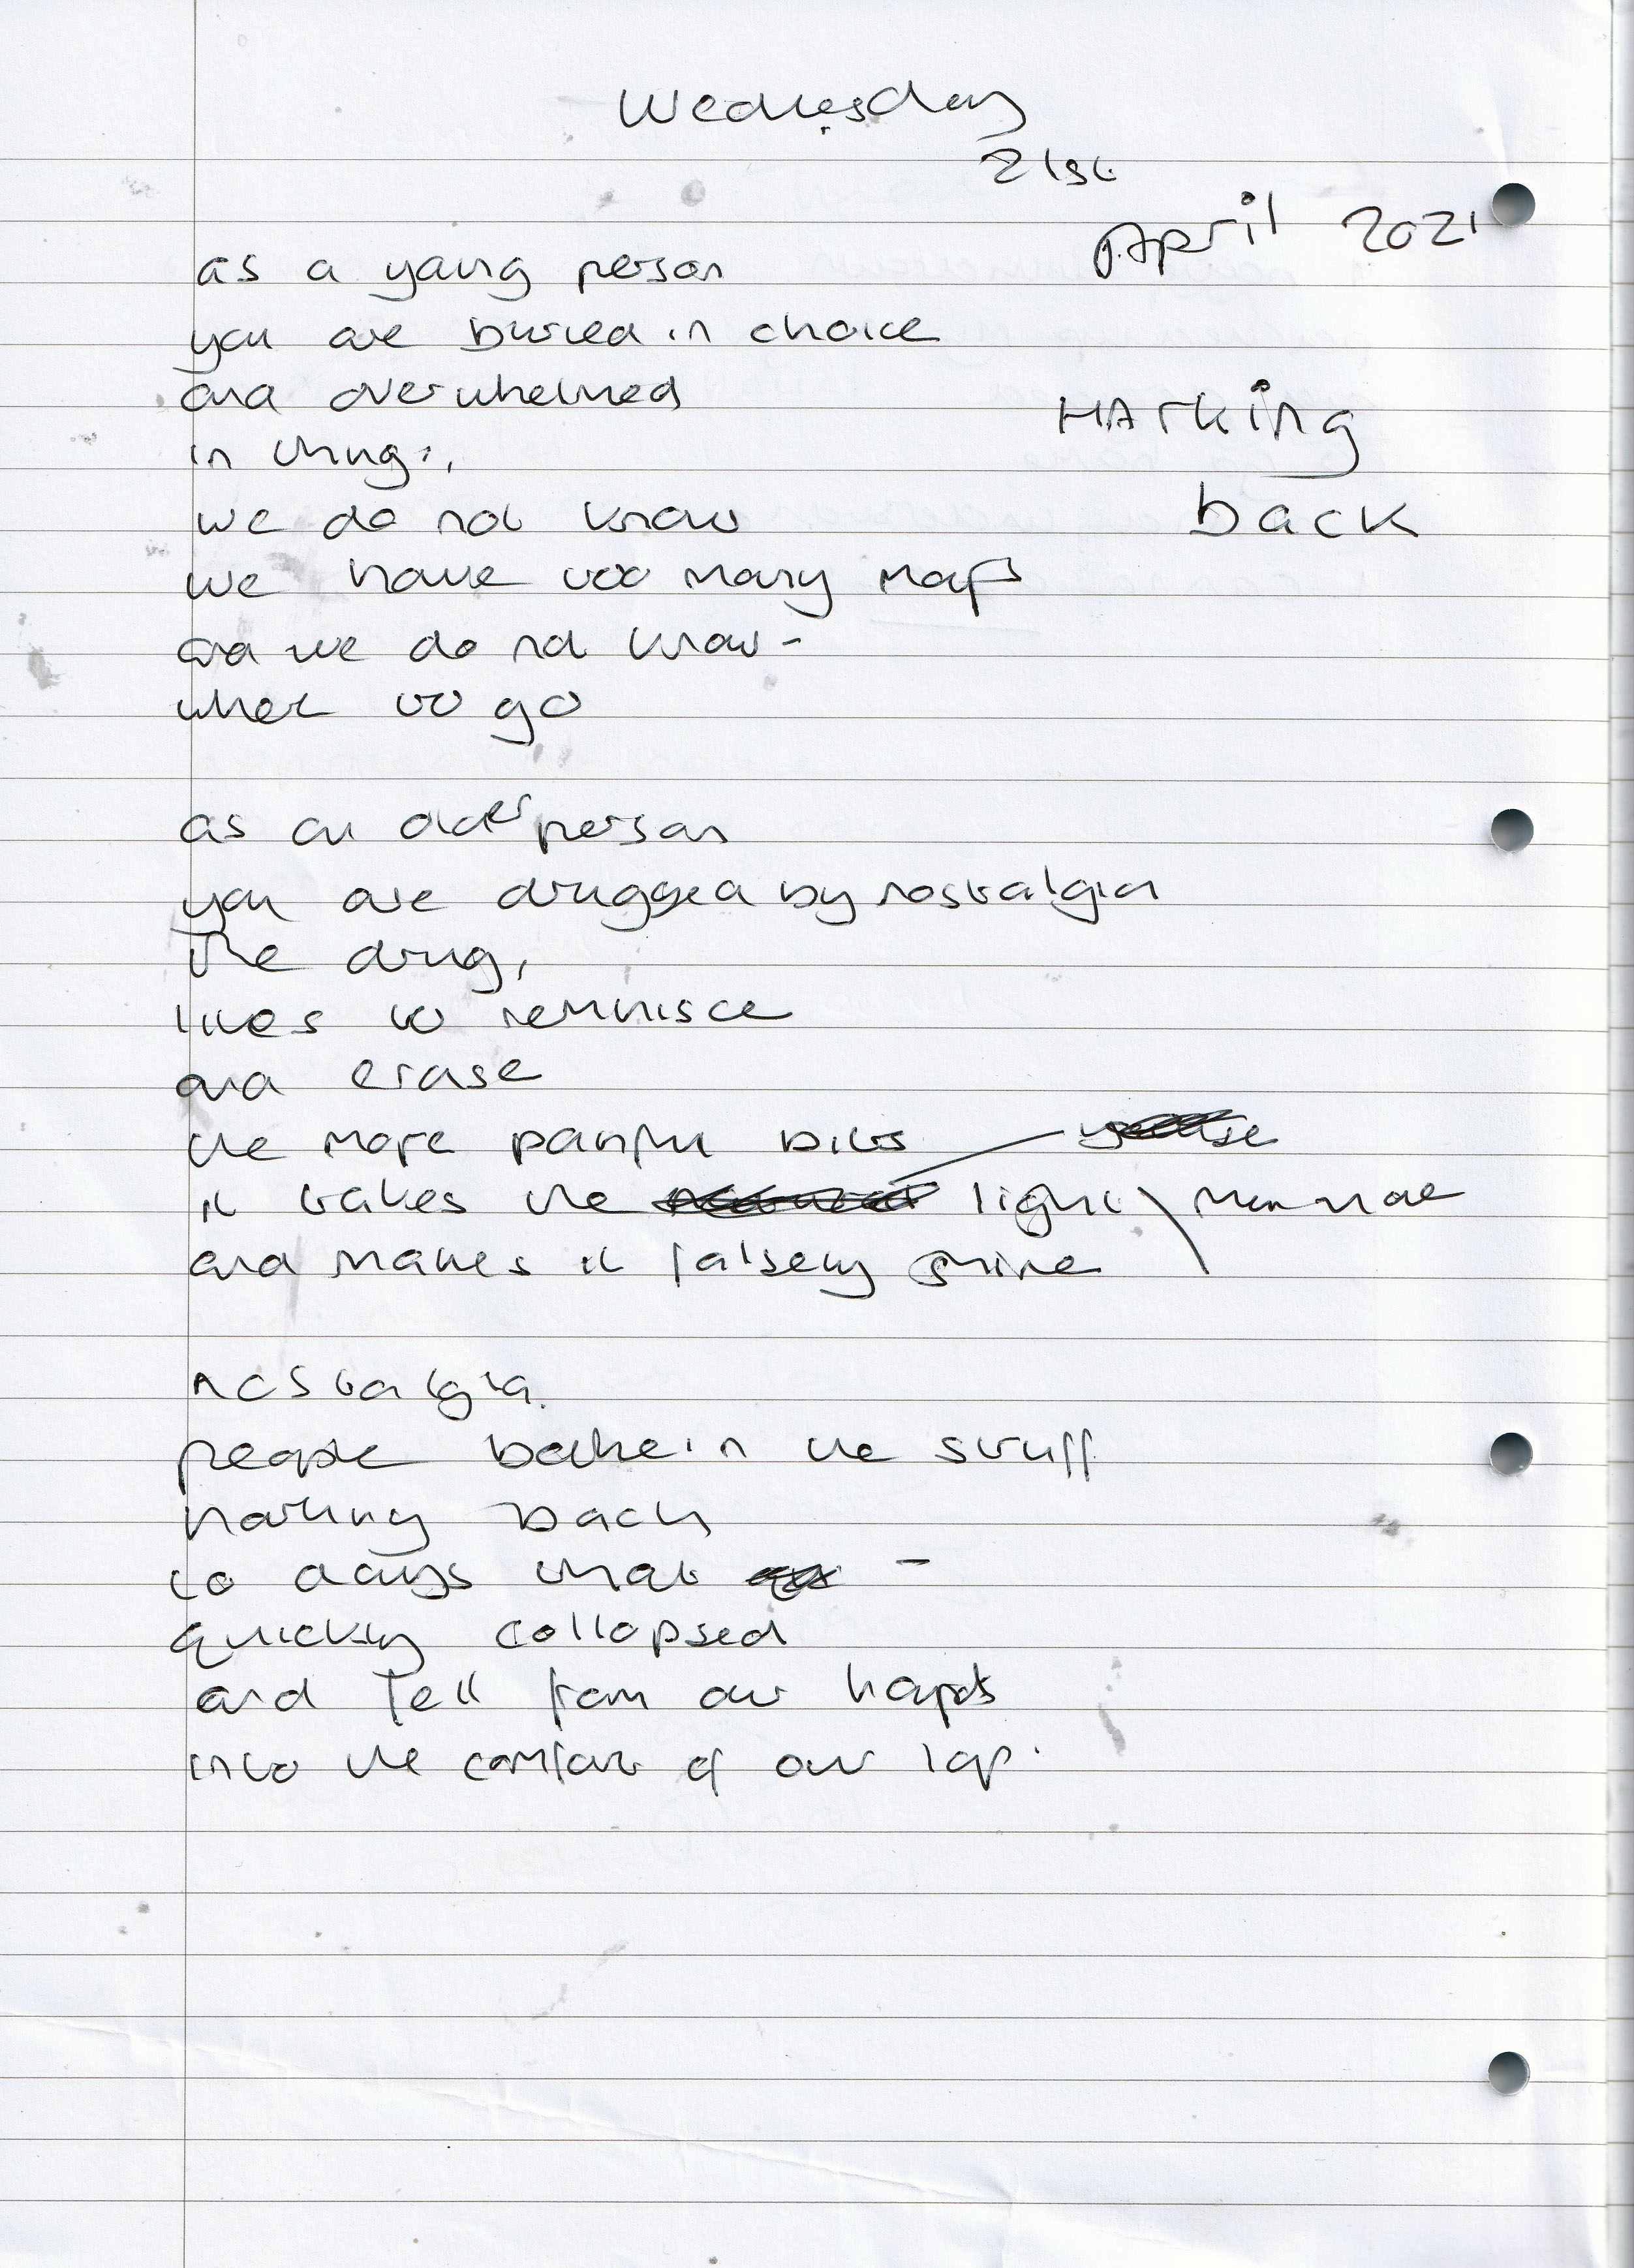 Wednesday
21st
April 2021
as a young person
you are buried in choice
and overwhelmed
in things,
Harking
back
we do not know
we have too many maps
and we do not know -
where to go
as an older person
you are drugged by nostalgia
the drug,
likes to reminisce
and erase
the more painful bits
it takes the light
and makes it falsely shine
nostalgia.
people bathe in the stuff
harking back
to days that -
quickly collapsed
and fell from our hands
into the comfort of our lap.